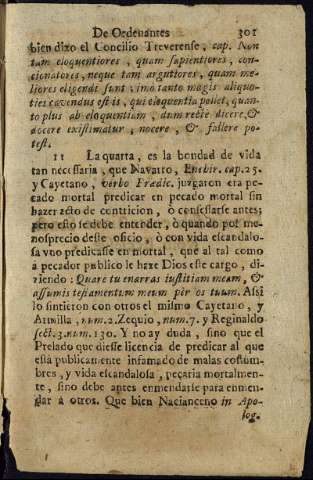 De Ordenantes 301
bien dixo el Concilio Treverense, cap. Non
tam eloquentiores, quam sapientiores, con-
cionatores, neque tam argutiores, quam me-
liores eligendi sunt: imo tanto magis aliquo-
ties cavendus est is, qui eloquentia pollet, quan-
to plus ab eloquentium, dum rectè dicere, &
docere existimatur, nocere, & fallere po-
test.
11 La quarta, es la bondad de vida
tan necessaria, que Navarro, Enchir. cap. 25.
y Cayetano, verbo Prædic. juzgaron era pe-
cado mortal predicar en pecado mortal sin
hazer acto de contricion, ò confessarse antes;
pero esto se debe entender, ò quando por me-
nosprecio deste oficio, ò con vida escandalo-
sa vno predicasse en mortal, que al tal como
à pecador publico le haze Dios este cargo, di-
ziendo: Quare tu enarras iustitiam meam, &
assumis testamentum meum per os tuum. Assi
lo sintieron con otros el mismo Cayetano, y
Armilla, num. 2. Zequio, num. 7. y Reginaldo
sect. 3. num. 130. Y no ay duda, sino que el
Prelado que diesse licencia de predicar al que
està publicamente infamado de malas costum-
bres, y vida escandalosa, pecaria mortalmen-
te, sino debe antes enmendarse para enmen-
dar à otros. Que bien Nacianceno in Apo-
log.